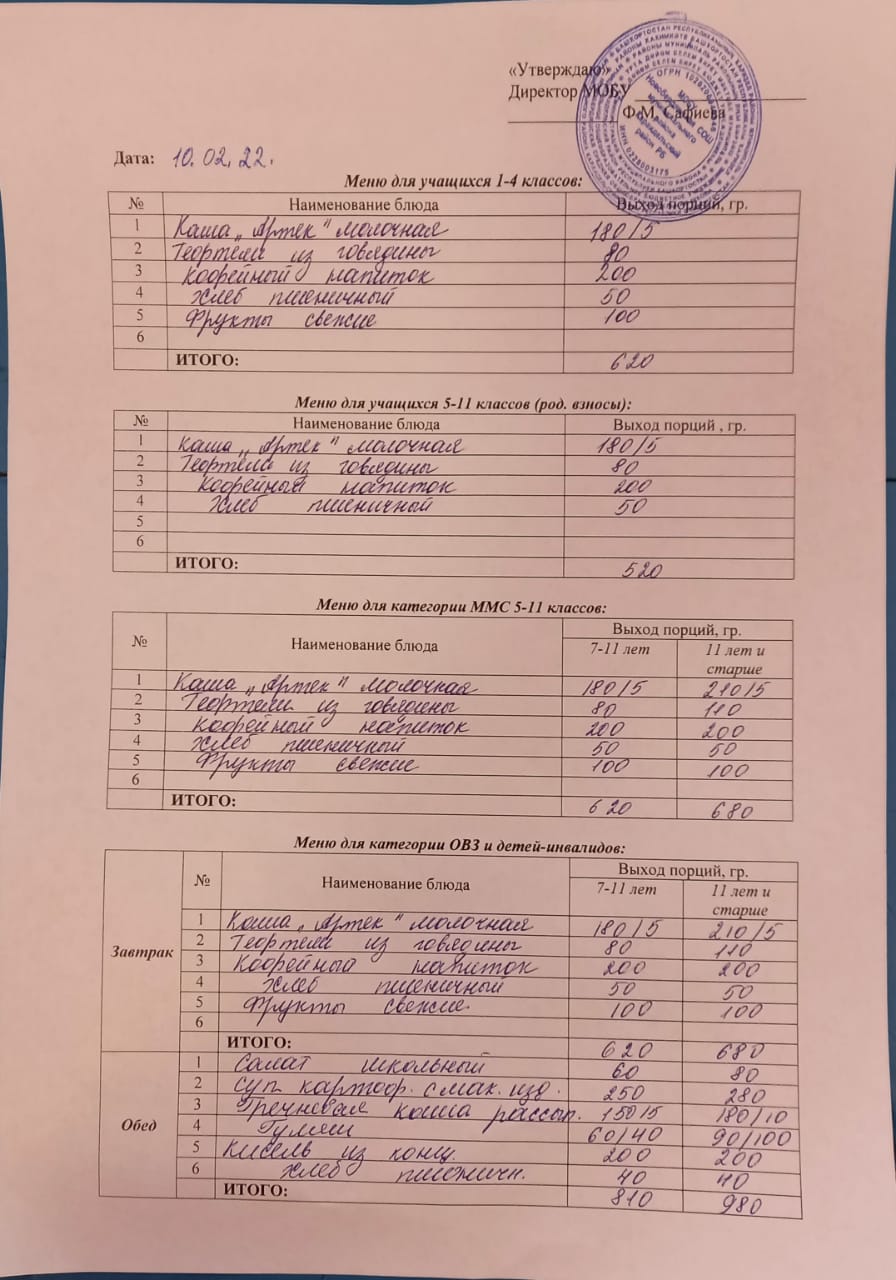 «Утверждаю»
Директор МОБУ
Ф.М. Сафиева
Дата: 10.02.22.
Меню для учащихся 1-4 классов:
№ Наименование блюда Выход порций, гр.
1 Каша „Артек" молочная 180/5
2 Теортели из говядины 80
3 Кофейный напиток 200
4 Хлеб пшеничный 50
5 Фрукты свежие 100
6
ИТОГО: 620
Меню для учащихся 5-11 классов (род. взносы):
№ Наименование блюда Выход порций , гр.
1 Каша „Артек" молочная 180/5
2 Теортели из говядины 80
3 Кофейный напиток 200
4 Хлеб пшеничный 50
5
6
ИТОГО: 520
Меню для категории ММС 5-11 классов:
№ Наименование блюда Выход порций, гр.
7-11 лет 11 лет и старше
1 Каша „Артек" молочная 180/5 210/5
2 Теортели из говядины 80 110
3 Кофейный напиток 200 200
4 Хлеб пшеничный 50 50
5 Фрукты свежие 100 100
6
ИТОГО: 620 680
Меню для категории ОВЗ и детей-инвалидов:
№ Наименование блюда Выход порций, гр.
7-11 лет 11 лет и старше
Завтрак
1 Каша „Артек" молочная 180/5 210/5
2 Теортели из говядины 80 110
3 Кофейный напиток 200 200
4 Хлеб пшеничный 50 50
5 Фрукты свежие 100 100
6
ИТОГО: 620 680
Обед
1 Салат школьный 60 80
2 Суп картоф. с мак. изд. 250 280
3 Гречневая каша рассып. 150/5 180/10
4 Гуляш 60/40 90/100
5 Кисель из конц. 200 200
6 Хлеб пшеничн. 40 40
ИТОГО: 810 980